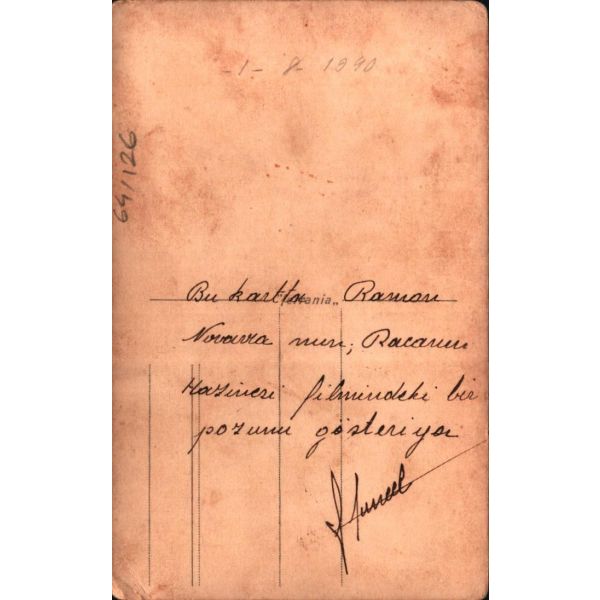 -1- 8- 1940
64/126
Bu kartta Ramon
Novarra nun; Racanın
Hazinesi filmindeki bir
pozunu gösteriyor